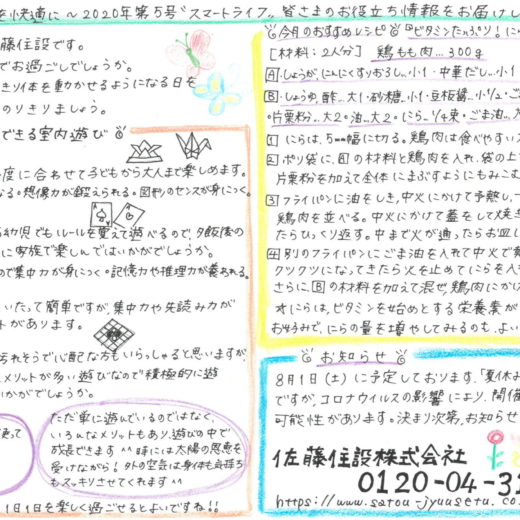 を快適に～2020年第5号〝スマートライフ〟皆さまのお役立ち情報をお届けし
藤住設です。
でお過ごしでしょうか。
きり体を動かせるようになる日を
のりきりましょう。
できる室内遊び
度に合わせて子どもから大人まで楽しめます。
なる。想像力が鍛えられる。図形のセンスが身につく。
幼児でもルールを変えて遊べるので、夕飯後の
に家族で楽しんではいかがでしょうか。
ので集中力が身につく。記憶力や推理力が養われる。
いたって簡単ですが、集中力や先読み力が
トがあります。
汚れそうで心配な方もいらっしゃると思いますが、
メリットが多い遊びなので積極的に遊
いかがでしょうか。
って
ただ単に遊んでいるのではなく、
いろんなメリットもあり、遊びの中で
成長できます^^時には太陽の恩恵を
受けながら!外の空気は身体も気持ち
もスッキリさせてくれます^^
1日1日を楽しく過ごせるとよいですね!!
今月のおすすめレシピ 『ビタミンたっぷり!に
[材料:2人分] 鶏もも肉…300g
A しょうが、にんにくすりおろし…小1・中華だし…小1
B しょうゆ、酢…大1・砂糖…小1・豆板醤…小1/2・ご
片栗粉…大2・油…大2・にら…1/4束・ごま油…大
1 にらは、5mm幅に切る。鶏肉は食べやすい大
2 ポリ袋に、Aの材料と鶏肉を入れ、袋の上
片栗粉を加えて全体にまぶすようにもみこむ
3 フライパンに油をしき、中火にかけて予熱し、
鶏肉を並べる。中火にかけて蓋をして焼き
たらひっくり返す。中まで火が通ったらお皿
4 別のフライパンにごま油を入れて中火で
クツクツになってきたら火を止めてにらを入
さらに、Bの材料を加えて混ぜ、鶏肉にかけ
にらは、ビタミンを始めとする栄養素が
お好みで、にらの量を増やしてみるのも、よい
お知らせ
8月1日(土)に予定しております、「夏休み
ですが、コロナウイルスの影響により、開催
可能性があります。決まり次第、お知らせ
佐藤住設株式会社
0120-04-32
https://www.satou-jyuusetu.co